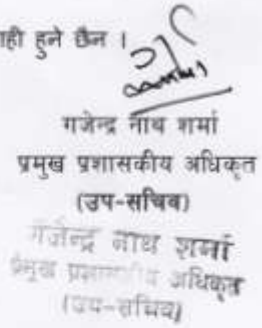 ही हुने छैन ।
गजेन्द्र नाथ शर्मा
प्रमुख प्रशासकीय अधिकृत
(उप-सचिव)
गजेन्द्र नाथ शर्मा
प्रमुख प्रशासकीय अधिकृत
(उप-सचिव)